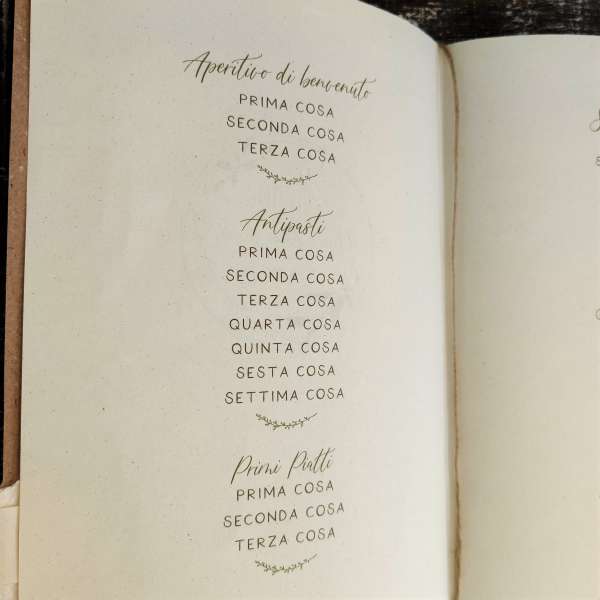 Aperitivo di benvenuto
PRIMA COSA
SECONDA COSA
TERZA COSA
Antipasti
PRIMA COSA
SECONDA COSA
TERZA COSA
QUARTA COSA
QUINTA COSA
SESTA COSA
SETTIMA COSA
Primi Piatti
PRIMA COSA
SECONDA COSA
TERZA COSA